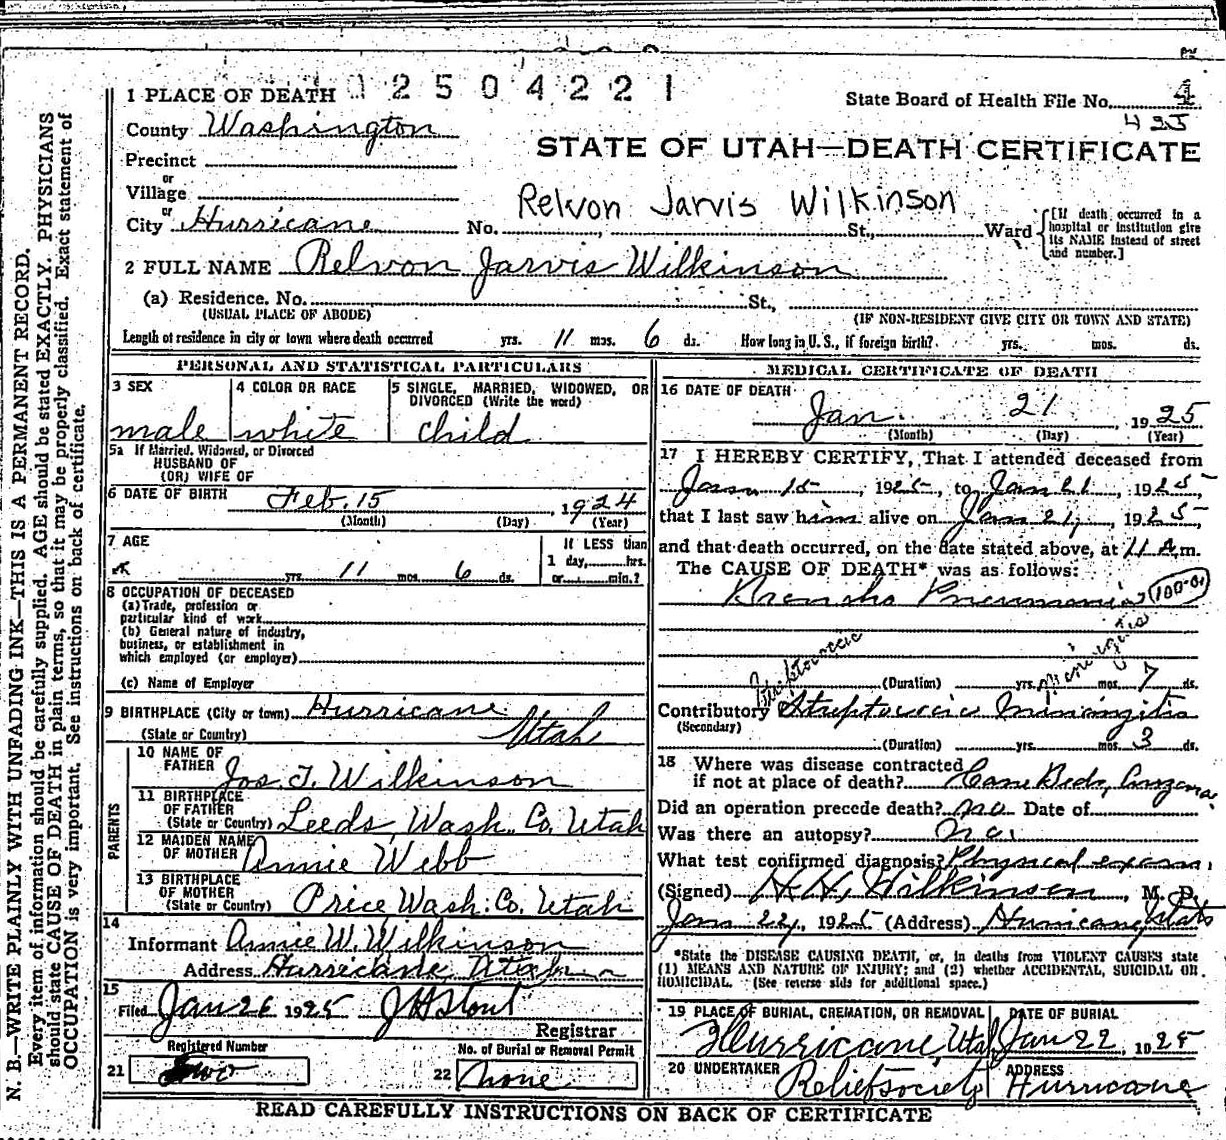 1 PLACE OF DEATH 12504221
State Board of Health File No. 4
425
County Washington
STATE OF UTAH—DEATH CERTIFICATE
Precinct
or
Village
Relvon Jarvis Wilkinson
or
City Hurricane No. St., Ward
[If death occurred in a
hospital or institution give
its NAME instead of street
and number.]
2 FULL NAME Relvon Jarvis Wilkinson
(a) Residence. No. St.,
(USUAL PLACE OF ABODE) (IF NON-RESIDENT GIVE CITY OR TOWN AND STATE)
Length of residence in city or town where death occurred yrs. 11 mos. 6 ds. How long in U. S., if foreign birth? yrs. mos. ds.
PERSONAL AND STATISTICAL PARTICULARS
3 SEX 4 COLOR OR RACE 5 SINGLE, MARRIED, WIDOWED, OR
DIVORCED (Write the word)
male white child
5a If Married, Widowed, or Divorced
HUSBAND OF
(OR) WIFE OF
6 DATE OF BIRTH Feb. 15, 1924
(Month) (Day) (Year)
7 AGE If LESS than
1 day, hrs.
yrs. 11 mos. 6 ds. or min.?
8 OCCUPATION OF DECEASED
(a) Trade, profession or
particular kind of work
(b) General nature of industry,
business, or establishment in
which employed (or employer)
(c) Name of Employer
9 BIRTHPLACE (City or town) Hurricane
(State or Country) Utah
PARENTS
10 NAME OF
FATHER Jos. T. Wilkinson
11 BIRTHPLACE
OF FATHER
(State or Country) Leeds, Wash. Co. Utah
12 MAIDEN NAME
OF MOTHER Annie Webb
13 BIRTHPLACE
OF MOTHER
(State or Country) Price Wash. Co. Utah
14
Informant Annie W. Wilkinson
Address Hurricane Utah
15
Filed Jan 26 1925 J H Stout
Registrar
Registered Number No. of Burial or Removal Permit
21 Two 22 None
MEDICAL CERTIFICATE OF DEATH
16 DATE OF DEATH
Jan. 21 1925
(Month) (Day) (Year)
17 I HEREBY CERTIFY, That I attended deceased from
Jan 15, 1925, to Jan 21, 1925,
that I last saw him alive on Jan 21, 1925
and that death occurred, on the date stated above, at 11 A.m.
The CAUSE OF DEATH* was as follows:
Broncho Pneumonia 100-01
Streptococcic Meningitis
(Duration) yrs. mos. 7 ds.
Contributory Streptococcic Miningitis
(Secondary)
(Duration) yrs. mos. 3 ds.
18 Where was disease contracted
if not at place of death? Cane Beds, Arizona
Did an operation precede death? no Date of
Was there an autopsy? no
What test confirmed diagnosis? Physical exam.
(Signed) H. H. Wilkinson, M. D.
Jan 22, 1925 (Address) Hurricane, Utah
*State the DISEASE CAUSING DEATH, or, in deaths from VIOLENT CAUSES state
(1) MEANS AND NATURE OF INJURY; and (2) whether ACCIDENTAL, SUICIDAL OR
HOMICIDAL. (See reverse side for additional space.)
19 PLACE OF BURIAL, CREMATION, OR REMOVAL DATE OF BURIAL
Hurricane, Utah Jan 22, 1925
20 UNDERTAKER ADDRESS
Relief society Hurricane
READ CAREFULLY INSTRUCTIONS ON BACK OF CERTIFICATE
N. B.—WRITE PLAINLY WITH UNFADING INK—THIS IS A PERMANENT RECORD.
Every item of information should be carefully supplied. AGE should be stated EXACTLY. PHYSICIANS
should state CAUSE OF DEATH in plain terms, so that it may be properly classified. Exact statement of
OCCUPATION is very important. See instructions on back of certificate.